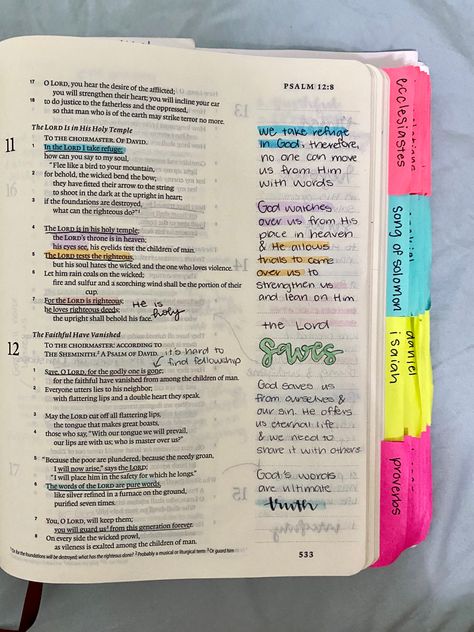 PSALM 12:8
17 O LORD, you hear the desire of the afflicted;
you will strengthen their heart; you will incline your ear
18 to do justice to the fatherless and the oppressed,
so that man who is of the earth may strike terror no more.
The LORD Is in His Holy Temple
11 TO THE CHOIRMASTER. OF DAVID.
1 In the LORD I take refuge;
how can you say to my soul,
"Flee like a bird to your mountain,
2 for behold, the wicked bend the bow;
they have fitted their arrow to the string
to shoot in the dark at the upright in heart;
3 if the foundations are destroyed,
what can the righteous do?"¹
4 The LORD is in his holy temple;
the LORD's throne is in heaven;
his eyes see, his eyelids test the children of man.
5 The LORD tests the righteous,
but his soul hates the wicked and the one who loves violence.
6 Let him rain coals on the wicked;
fire and sulfur and a scorching wind shall be the portion of their
cup.
7 For the LORD is righteous;
he loves righteous deeds;
the upright shall behold his face.
He is
holy
The Faithful Have Vanished
12 TO THE CHOIRMASTER: ACCORDING TO
THE SHEMINITH.² A PSALM OF DAVID.
it's hard to
find fellowship
1 Save, O LORD, for the godly one is gone;
for the faithful have vanished from among the children of man.
2 Everyone utters lies to his neighbor;
with flattering lips and a double heart they speak.
3 May the LORD cut off all flattering lips,
the tongue that makes great boasts,
4 those who say, "With our tongue we will prevail,
our lips are with us; who is master over us?"
5 "Because the poor are plundered, because the needy groan,
I will now arise," says the LORD;
"I will place him in the safety for which he longs."
6 The words of the LORD are pure words,
like silver refined in a furnace on the ground,
purified seven times.
7 You, O LORD, will keep them;
you will guard us³ from this generation forever.
8 On every side the wicked prowl,
as vileness is exalted among the children of man.
¹ Or for the foundations will be destroyed; what has the righteous done? ² Probably a musical or liturgical term ³ Or guard him
533
we take refuge
in God, therefore,
no one can move
us from Him
with words
God watches
over us from His
place in heaven
& He allows
trials to come
over us to
strengthen us
and lean on Him
the Lord
saves
God saves us
from ourselves &
our sin. He offers
us eternal life
& we need to
share it with others
God's words
are ultimate
truth
ecclesiastes
song of solomon
isaiah
daniel
proverbs